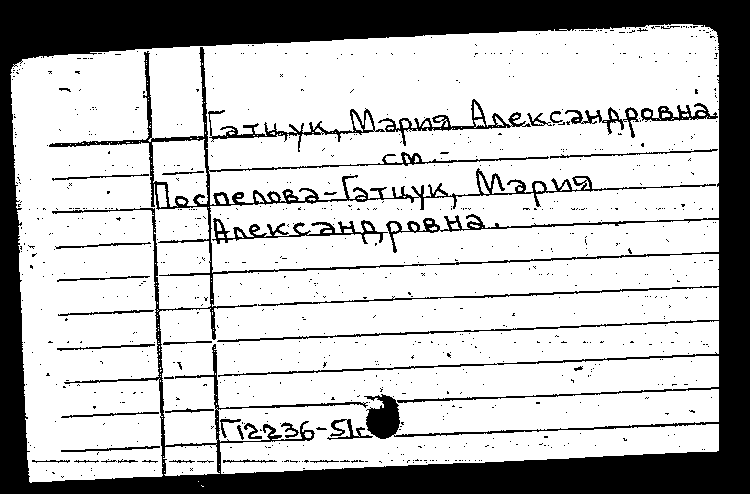 Гатцук, Мария Александровна
см.-
Поспелова-Гатцук, Мария
Александровна.
П2236-51г